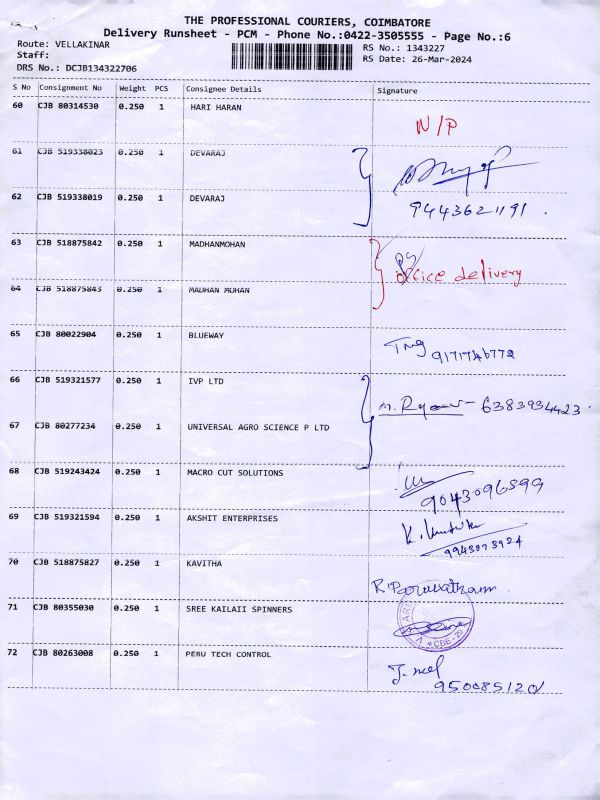 THE PROFESSIONAL COURIERS, COIMBATORE
Delivery Runsheet - PCM - Phone No.:0422-3505555 - Page No.:6
Route: VELLAKINAR
RS No.: 1343227
Staff:
RS Date: 26-Mar-2024
DRS No.: DCJB134322706
S No Consignment No Weight PCS Consignee Details Signature
60 CJB 80314530 0.250 1 HARI HARAN
N/P
61 CJB 519338023 0.250 1 DEVARAJ
62 CJB 519338019 0.250 1 DEVARAJ
9443621191.
63 CJB 518875842 0.250 1 MADHANMOHAN
office delivery
64 CJB 518875843 0.250 1 MADHAN MOHAN
65 CJB 80022904 0.250 1 BLUEWAY
9171746772
66 CJB 519321577 0.250 1 IVP LTD
6383934423
67 CJB 80277234 0.250 1 UNIVERSAL AGRO SCIENCE P LTD
68 CJB 519243424 0.250 1 MACRO CUT SOLUTIONS
9043096599
69 CJB 519321594 0.250 1 AKSHIT ENTERPRISES
70 CJB 518875827 0.250 1 KAVITHA
71 CJB 80355030 0.250 1 SREE KAILAII SPINNERS
72 CJB 80263008 0.250 1 PERU TECH CONTROL